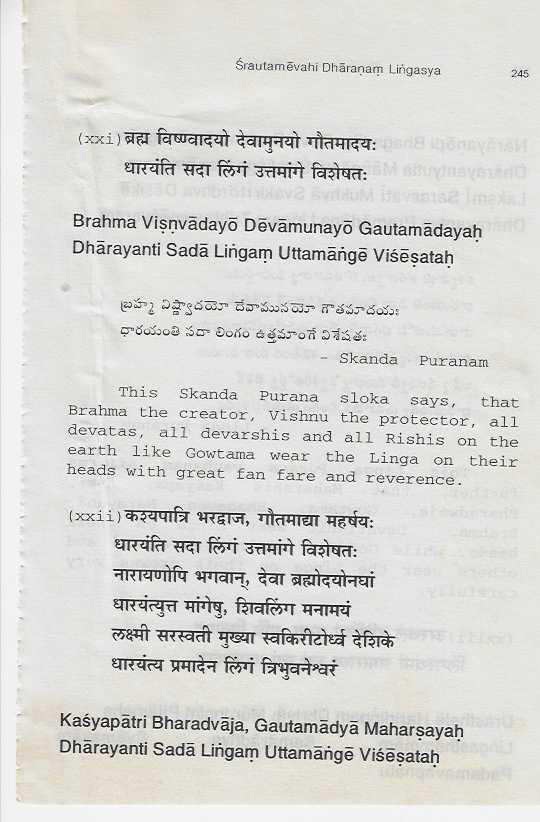 Śrautamēvahi Dhāraṇaṃ Liṅgasya
245
(xxi) ब्रह्म विष्ण्वादयो देवामुनयो गौतमादयः
धारयंति सदा लिंगं उत्तमांगे विशेषतः
Brahma Viṣṇvādayō Dēvāmunayō Gautamādayaḥ
Dhārayanti Sadā Liṅgaṃ Uttamāṅgē Viśēṣataḥ
బ్రహ్మ విష్ణ్వాదయో దేవామునయో గౌతమాదయః
ధారయంతి సదా లింగం ఉత్తమాంగే విశేషతః
- Skanda Puranam
This Skanda Purana sloka says, that
Brahma the creator, Vishnu the protector, all
devatas, all devarshis and all Rishis on the
earth like Gowtama wear the Linga on their
heads with great fan fare and reverence.
(xxii) कश्यपात्रि भरद्वाज, गौतमाद्या महर्षयः
धारयंति सदा लिंगं उत्तमांगे विशेषतः
नारायणोपि भगवान्, देवा ब्रह्मोदयोनघां
धारयंत्युत्त मांगेषु, शिवलिंग मनामयं
लक्ष्मी सरस्वती मुख्या स्वकिरीटोर्ध्व देशिके
धारयंत्य प्रमादेन लिंगं त्रिभुवनेश्वरं
Kaśyapātri Bharadvāja, Gautamādyā Maharṣayaḥ
Dhārayanti Sadā Liṅgaṃ Uttamāṅgē Viśēṣataḥ